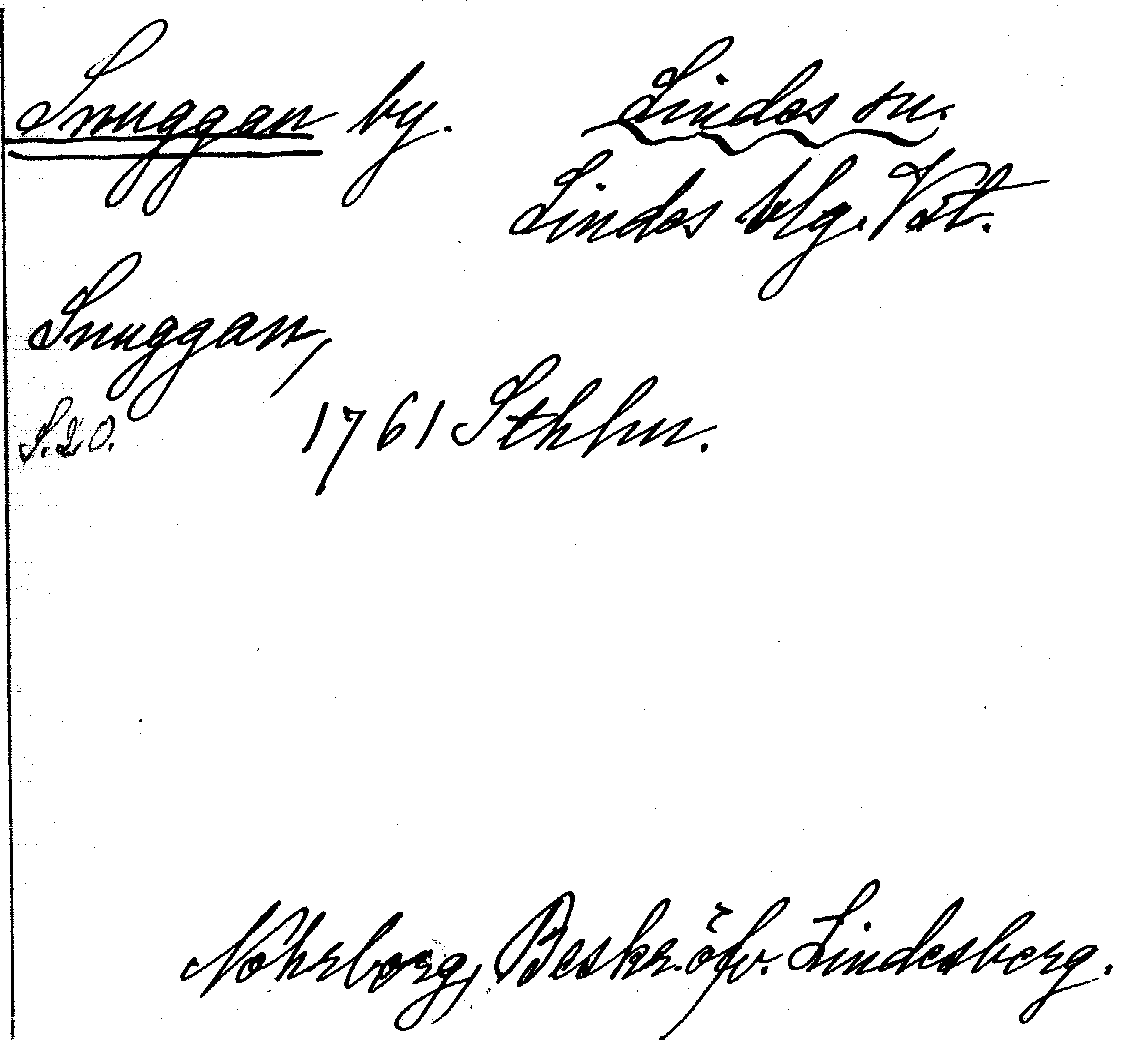 Snuggan by. Lindes sn.
Lindes blg. Vstm.
Snuggan,
S. 20. 1761 Sthlm.
Nohrborg, Beskr. öfv. Lindesberg.